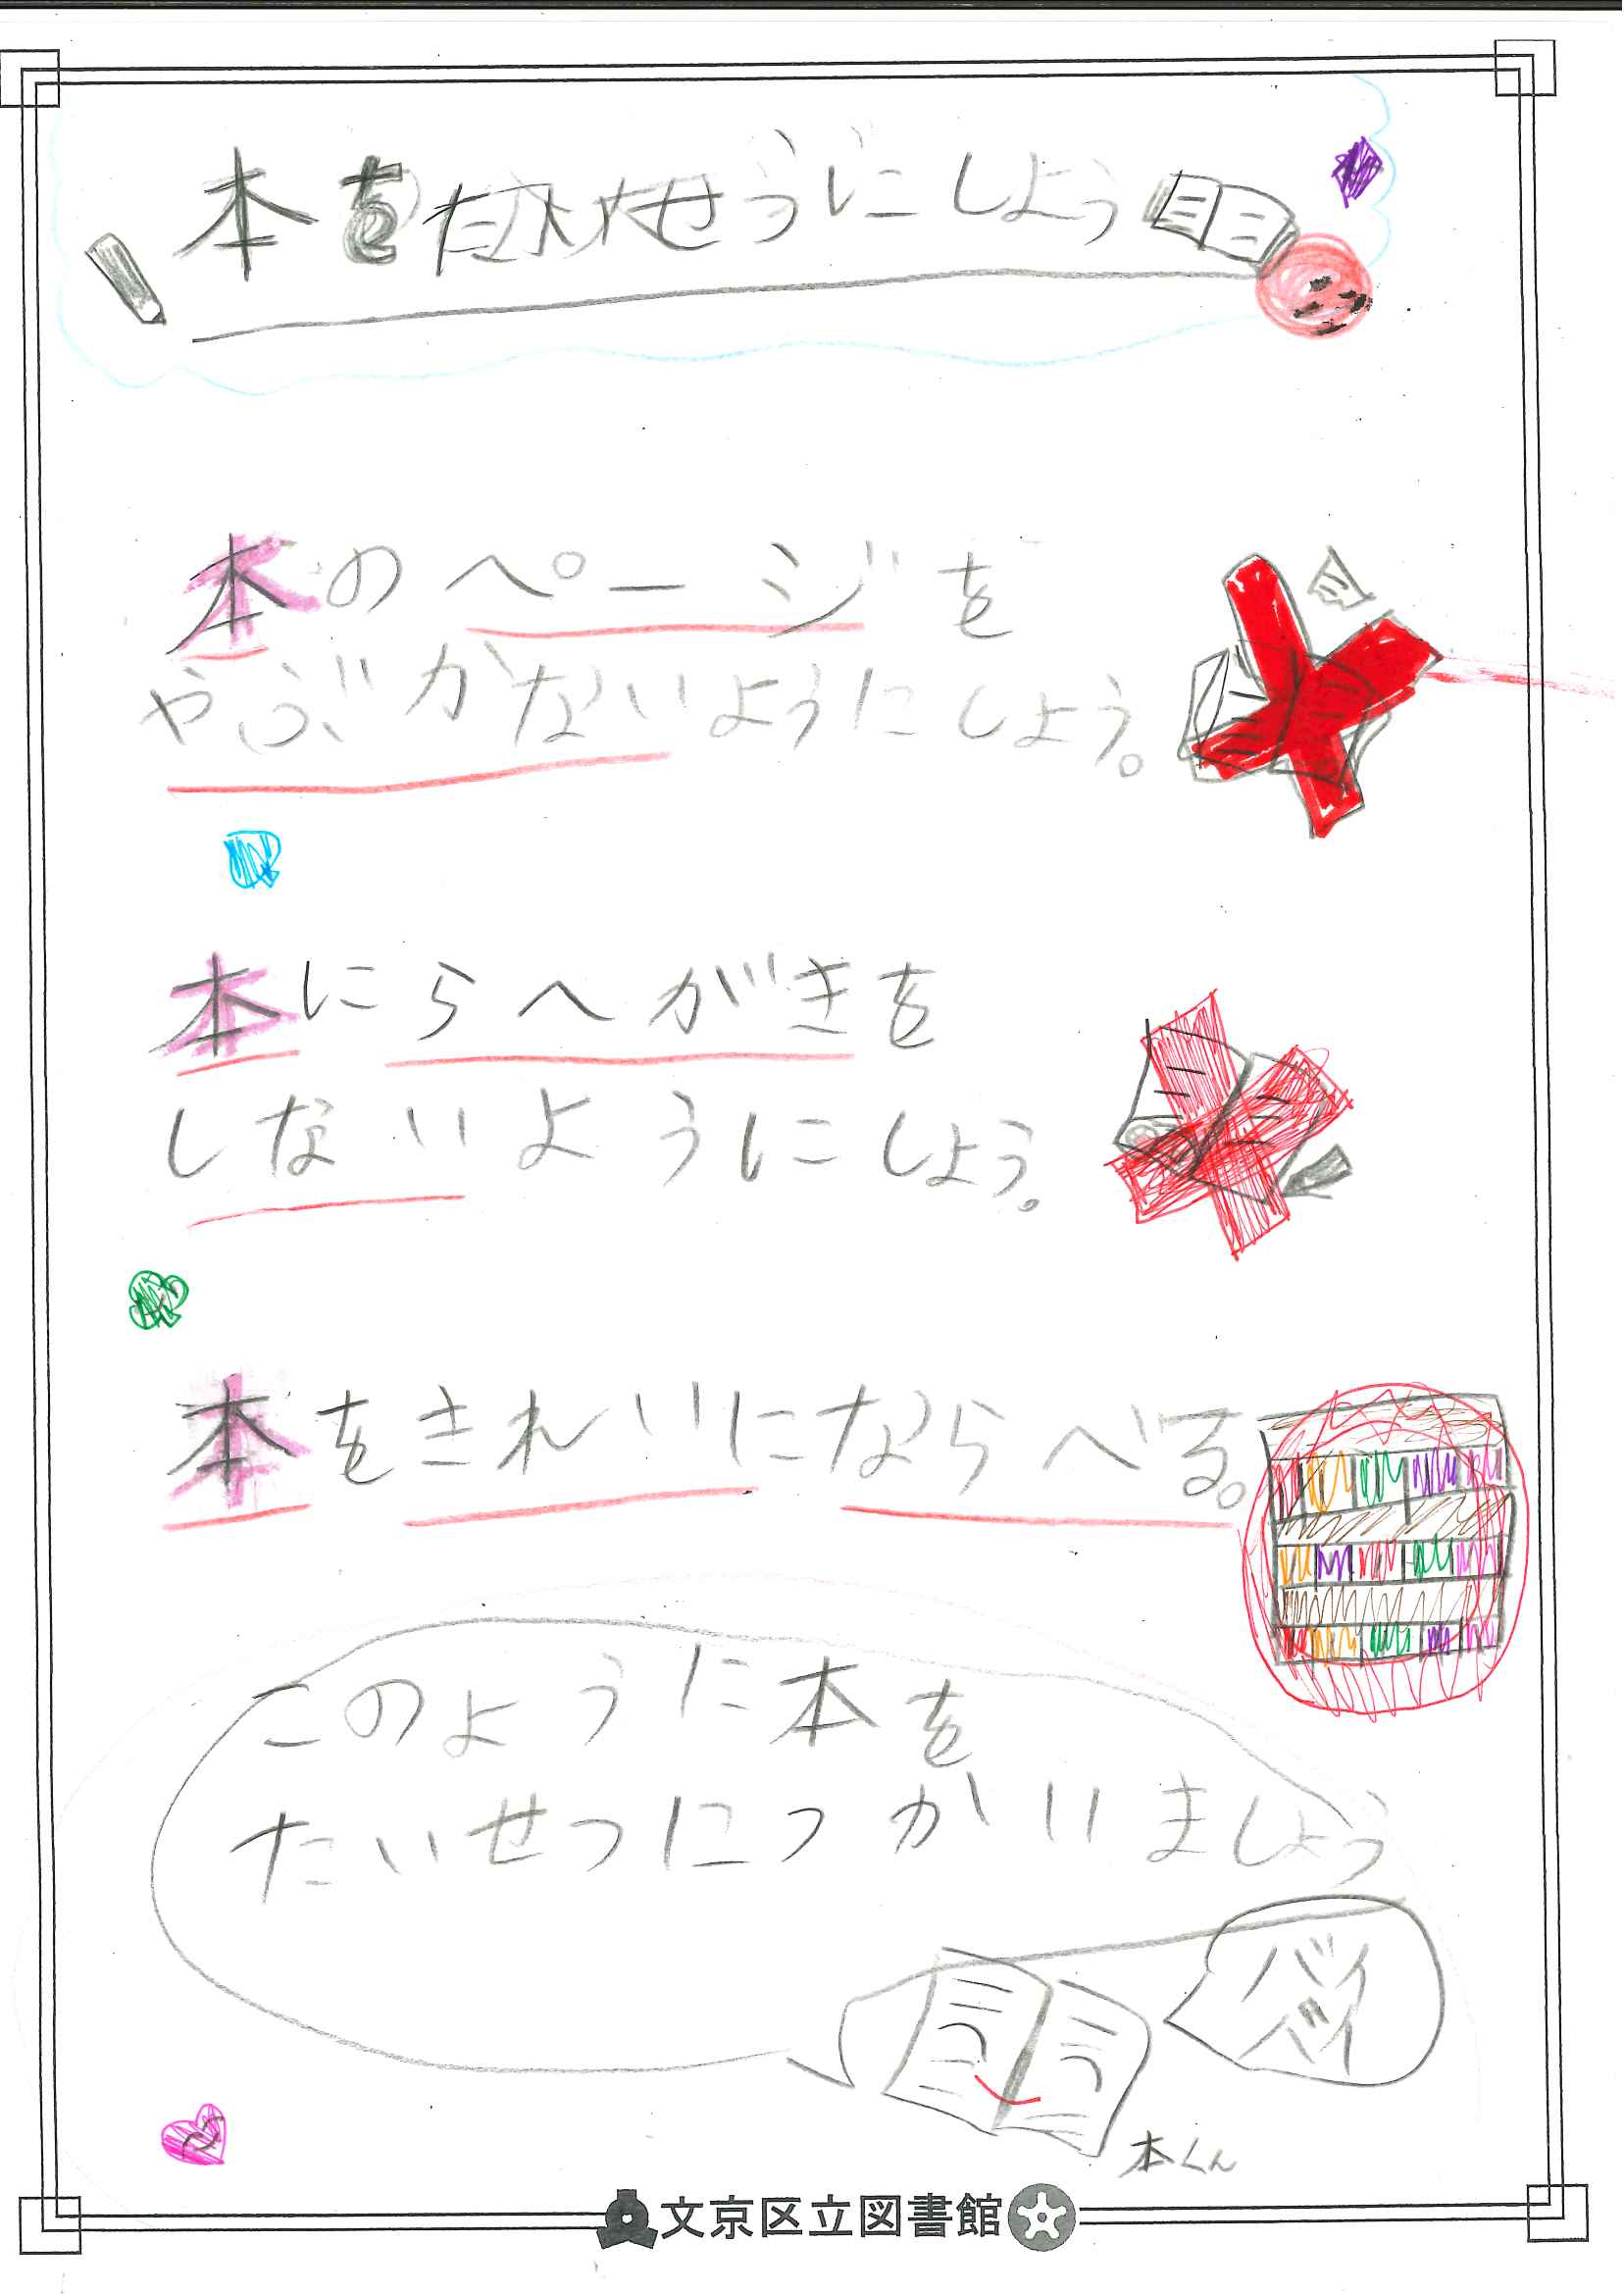 本をたいせつにしよう
本のページを
やぶかないようにしよう。
本にらへがきを
しないようにしよう。
本をきれいにならべる。
このように本を
たいせつにつかいましょう
バイ
バイ
本くん
文京区立図書館